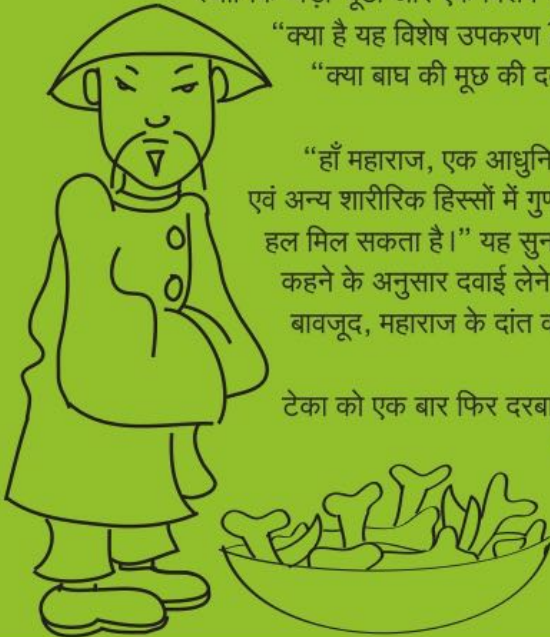 “क्या है यह विशेष उपकरण
“क्या बाघ की मूछ की
“हाँ महाराज, एक
एवं अन्य शारीरिक हिस्सों में
हल मिल सकता है।” यह
कहने के अनुसार दवाई लेने
बावजूद, महाराज के दांत
टेका को एक बार फिर